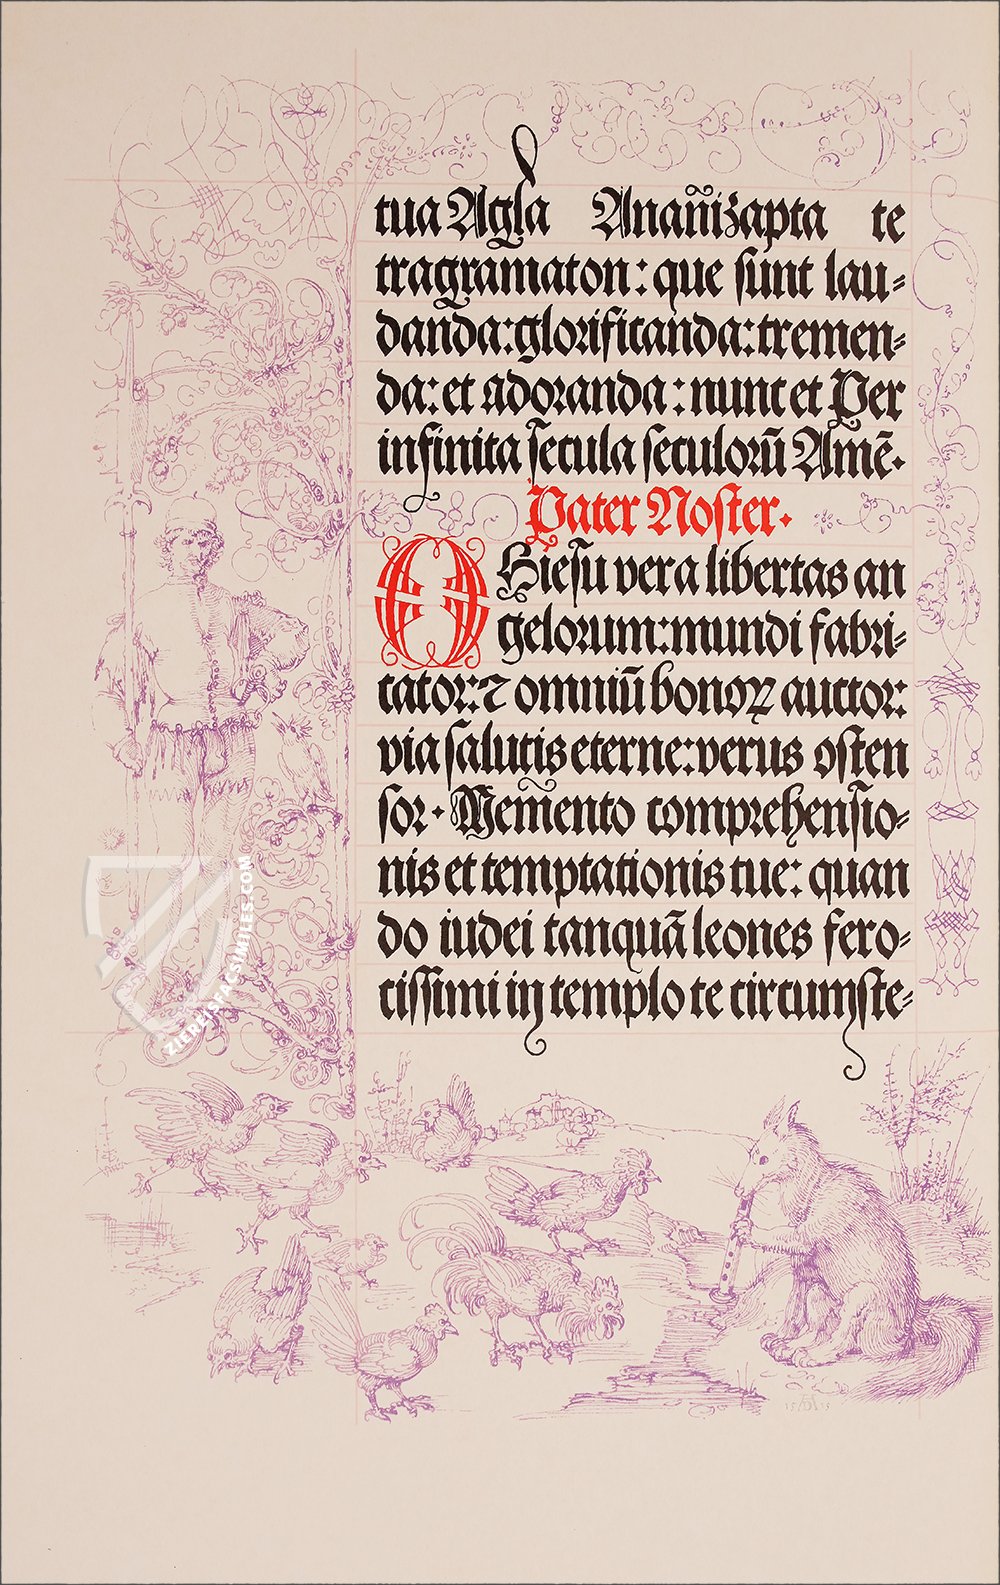 tua Agla Anañizapta te
tragramaton: que sunt lau-
danda: glorificanda: tremen-
da: et adoranda: nunc et Per
infinita secula seculorū Amē.
Pater Noster.
O Hiesu vera libertas an
gelorum: mundi fabri-
cator: ⁊ omniū bonoꝝ auctor:
via salutis eterne: verus osten
sor. Memento comprehensio-
nis et temptationis tue: quan
do iudei tanquā leones fero-
cissimi in templo te circumste-
ZIEREIS FACSIMILES.COM